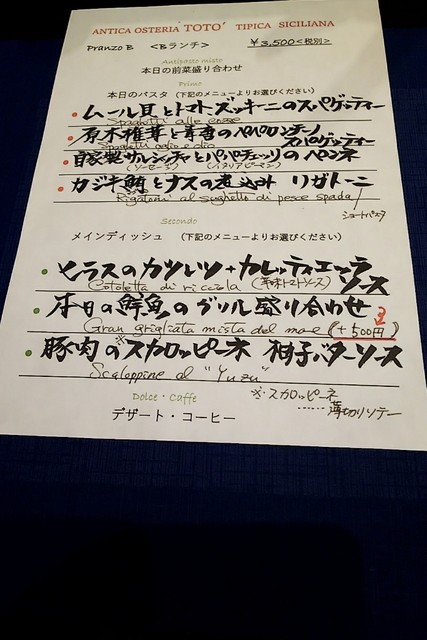 ANTICA OSTERIA "TOTO'" TIPICA SICILIANA
Pranzo B <Bランチ> ¥3,500<税別>
Antipasto misto
本日の前菜盛り合わせ
Primo
本日のパスタ (下記のメニューよりお選びください)
ムール貝とトマトズッキーニのスパゲッティー
Spaghetti alle cozze
原木椎茸と青唐のペペロンチーノ スパゲッティー
Spaghetti aglio e olio
自家製サルシッチャとパパチェッリのペンネ
(ソーセージ) (イタリアピーマン)
カジキ鮪とナスの煮込み リガトーニ
Rigatoni al sughetto di pesce spada
ショートパスタ
Secondo
メインディッシュ (下記のメニューよりお選びください)
ヒラスのカツレツ+カレッティエッラソース
Cotoletta di ricciola (辛味トマトソース)
本日の鮮魚のグリル盛り合わせ
Gran grigliata mista del mare (+500円)
豚肉の※スカロッピーネ 柚子バターソース
Scaloppine al "Yuzu"
※・スカロッピーネ
……薄切りソテー
Dolce・Caffè
デザート・コーヒー